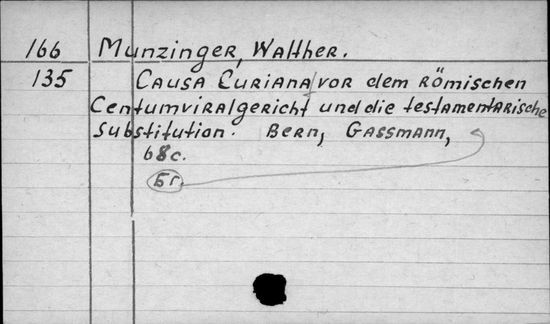 166 Munzinger, Walther.
135 Causa Curiana vor dem Römischen
Centumviralgericht und die testamentarische
Substitution. Bern, Gassmann,
68 c.
Б г.